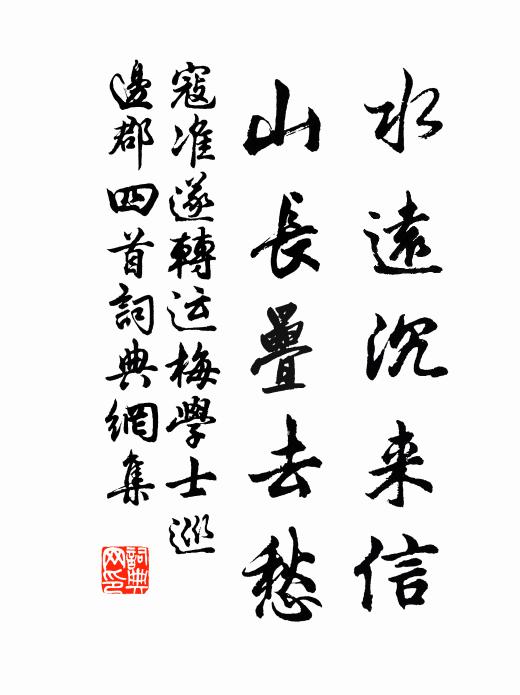 水遠沉来信
山長疊去愁
寇准遂轉运梅學士巡
邊郡四首詞典網集
詞典网印